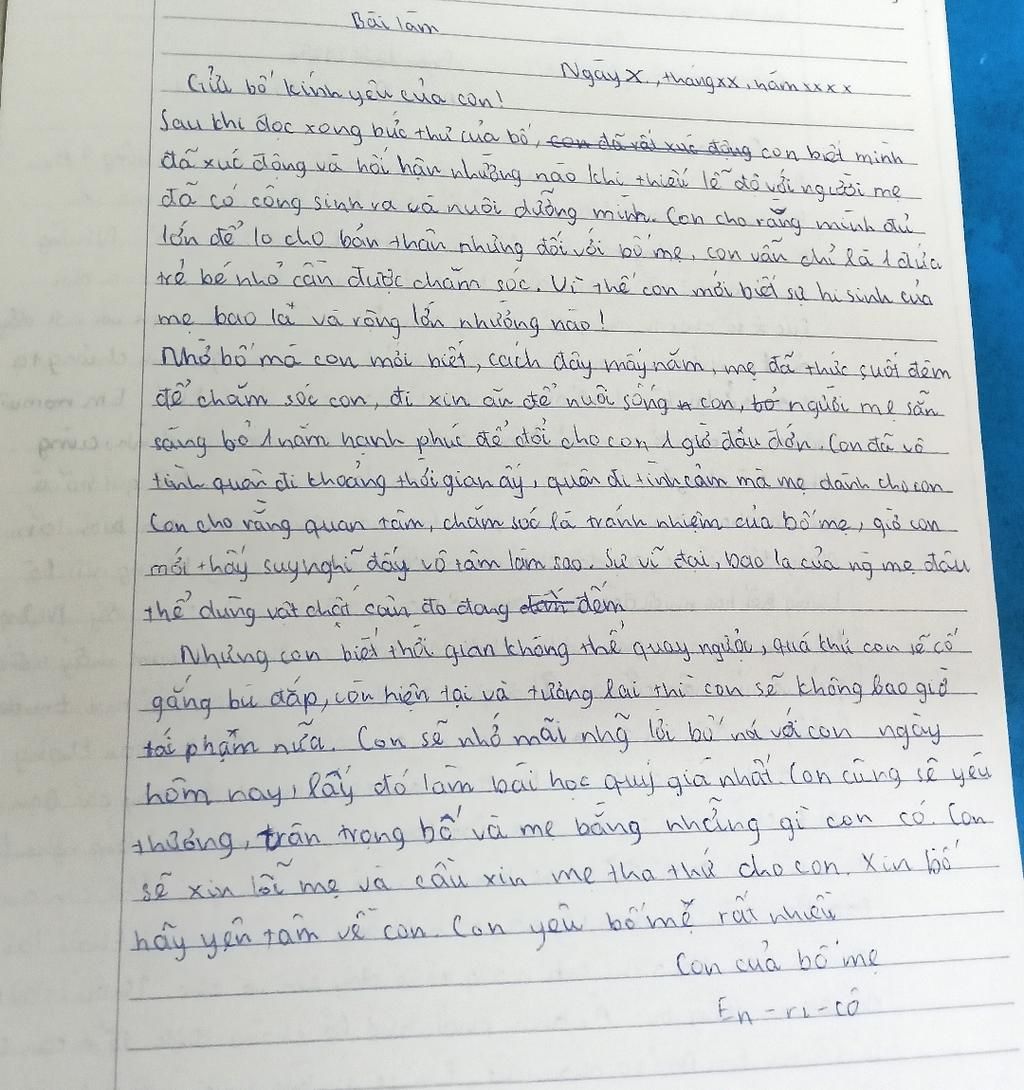 Bài làm
Ngày x, tháng xx, năm xxxx
Gửi bố kính yêu của con!
Sau khi đọc xong bức thư của bố, con đã rất xúc động con biết mình
đã xúc động và hối hận nhường nào khi thiếu lễ độ với người mẹ
đã có công sinh ra và nuôi dưỡng mình. Con cho rằng mình đủ
lớn để lo cho bản thân nhưng đối với bố mẹ, con vẫn chỉ là 1 đứa
trẻ bé nhỏ cần được chăm sóc. Vì thế con mới biết sự hi sinh của
mẹ bao la và rộng lớn nhường nào!
Nhờ bố mà con mới biết, cách đây mấy năm, mẹ đã thức suốt đêm
để chăm sóc con, đi xin ăn để nuôi sống con, người mẹ sẵn
sàng bỏ 1 năm hạnh phúc để đổi cho con 1 giờ đau đớn. Con đã vô
tình quên đi khoảng thời gian ấy, quên đi tình cảm mà mẹ dành cho con
Con cho rằng quan tâm, chăm sóc là tránh nhiệm của bố mẹ, giờ con
mới thấy suy nghĩ đấy vô tâm làm sao. Sự vĩ đại, bao la của ng mẹ đâu
thể dùng vật chất cân đo đong đếm
Nhưng con biết thời gian không thể quay ngược, quá khứ con sẽ cố
gắng bù đắp, còn hiện tại và tương lai thì con sẽ không bao giờ
tái phạm nữa. Con sẽ nhớ mãi nhg lời bố nói với con ngày
hôm nay, lấy đó làm bài học quý giá nhất. Con cũng sẽ yêu
thương, trân trọng bố và mẹ bằng những gì con có. Con
sẽ xin lỗi mẹ và cầu xin mẹ tha thứ cho con. Xin bố
hãy yên tâm về con. Con yêu bố mẹ rất nhiều
Con của bố mẹ
En-ri-cô